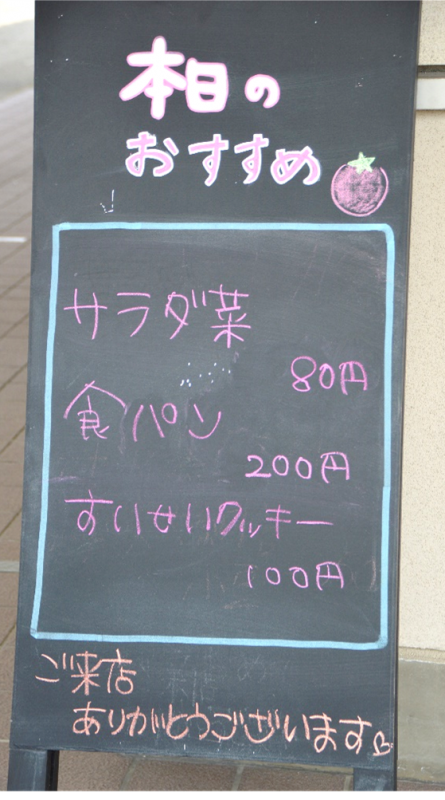 本日の
おすすめ
サラダ菜
80円
食パン
200円
すいせいクッキー
100円
ご来店
ありがとうございます